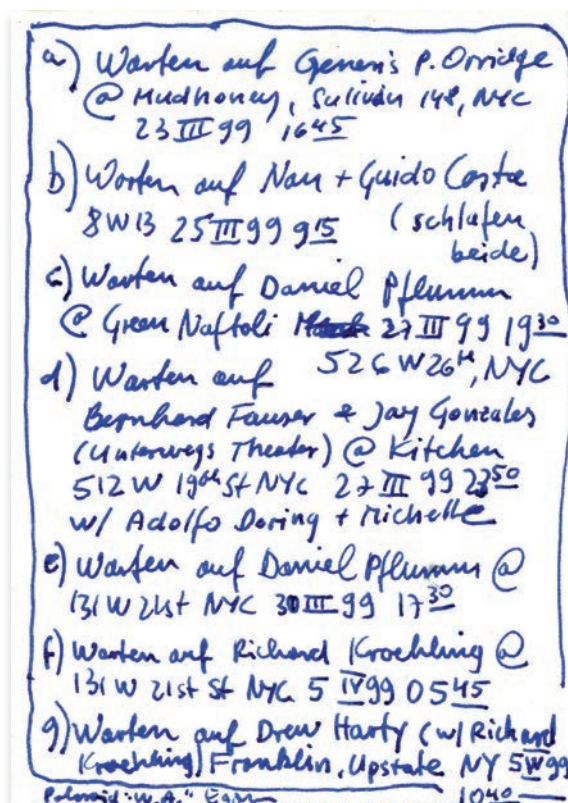 a) Warten auf Genesis P. Orridge
@ Mudhoney, Sullivan 148, NYC
23 III 99 16 45
b) Warten auf Nan + Guido Costa
8 W 13 25 III 99 9 15 (schlafen
beide)
c) Warten auf Daniel Pflumm
@ Green Naftoli 27 III 99 19 30
526 W 26th, NYC
d) Warten auf
Bernhard Fauser + Jay Gonzales
(Unterwegs Theater) @ Kitchen
512 W 19th St NYC 27 III 99 23 50
w/ Adolfo Doring + Michelle
e) Warten auf Daniel Pflumm @
131 W 21st NYC 30 III 99 17 30
f) Warten auf Richard Kroehling @
131 W 21st St NYC 5 IV 99 05 45
g) Warten auf Drew Harty (w/ Richard
Kroehling) Franklin, Upstate NY 5 IV 99
Polaroid "W.A." 10 40